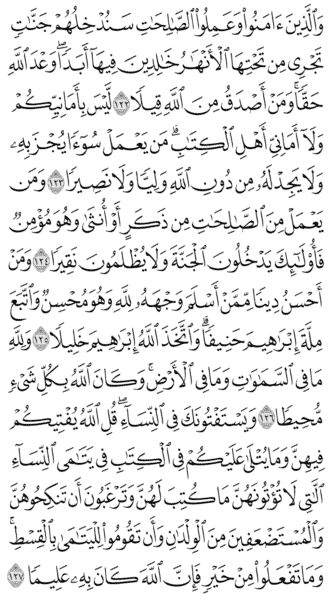 وَٱلَّذِينَ ءَامَنُوا۟ وَعَمِلُوا۟ ٱلصَّٰلِحَٰتِ سَنُدْخِلُهُمْ جَنَّٰتٍ
تَجْرِى مِن تَحْتِهَا ٱلْأَنْهَٰرُ خَٰلِدِينَ فِيهَآ أَبَدًا ۖ وَعْدَ ٱللَّهِ
حَقًّا ۚ وَمَنْ أَصْدَقُ مِنَ ٱللَّهِ قِيلًا ١٢٢ لَّيْسَ بِأَمَانِيِّكُمْ
وَلَآ أَمَانِىِّ أَهْلِ ٱلْكِتَٰبِ ۗ مَن يَعْمَلْ سُوٓءًا يُجْزَ بِهِۦ
وَلَا يَجِدْ لَهُۥ مِن دُونِ ٱللَّهِ وَلِيًّا وَلَا نَصِيرًا ١٢٣ وَمَن
يَعْمَلْ مِنَ ٱلصَّٰلِحَٰتِ مِن ذَكَرٍ أَوْ أُنثَىٰ وَهُوَ مُؤْمِنٌ
فَأُو۟لَٰٓئِكَ يَدْخُلُونَ ٱلْجَنَّةَ وَلَا يُظْلَمُونَ نَقِيرًا ١٢٤ وَمَنْ
أَحْسَنُ دِينًا مِّمَّنْ أَسْلَمَ وَجْهَهُۥ لِلَّهِ وَهُوَ مُحْسِنٌ وَٱتَّبَعَ
مِلَّةَ إِبْرَٰهِيمَ حَنِيفًا ۗ وَٱتَّخَذَ ٱللَّهُ إِبْرَٰهِيمَ خَلِيلًا ١٢٥ وَلِلَّهِ
مَا فِى ٱلسَّمَٰوَٰتِ وَمَا فِى ٱلْأَرْضِ ۚ وَكَانَ ٱللَّهُ بِكُلِّ شَىْءٍ
مُّحِيطًا ١٢٦ وَيَسْتَفْتُونَكَ فِى ٱلنِّسَآءِ ۖ قُلِ ٱللَّهُ يُفْتِيكُمْ
فِيهِنَّ وَمَا يُتْلَىٰ عَلَيْكُمْ فِى ٱلْكِتَٰبِ فِى يَتَٰمَى ٱلنِّسَآءِ
ٱلَّٰتِى لَا تُؤْتُونَهُنَّ مَا كُتِبَ لَهُنَّ وَتَرْغَبُونَ أَن تَنكِحُوهُنَّ
وَٱلْمُسْتَضْعَفِينَ مِنَ ٱلْوِلْدَٰنِ وَأَن تَقُومُوا۟ لِلْيَتَٰمَىٰ بِٱلْقِسْطِ ۚ
وَمَا تَفْعَلُوا۟ مِنْ خَيْرٍ فَإِنَّ ٱللَّهَ كَانَ بِهِۦ عَلِيمًا ١٢٧